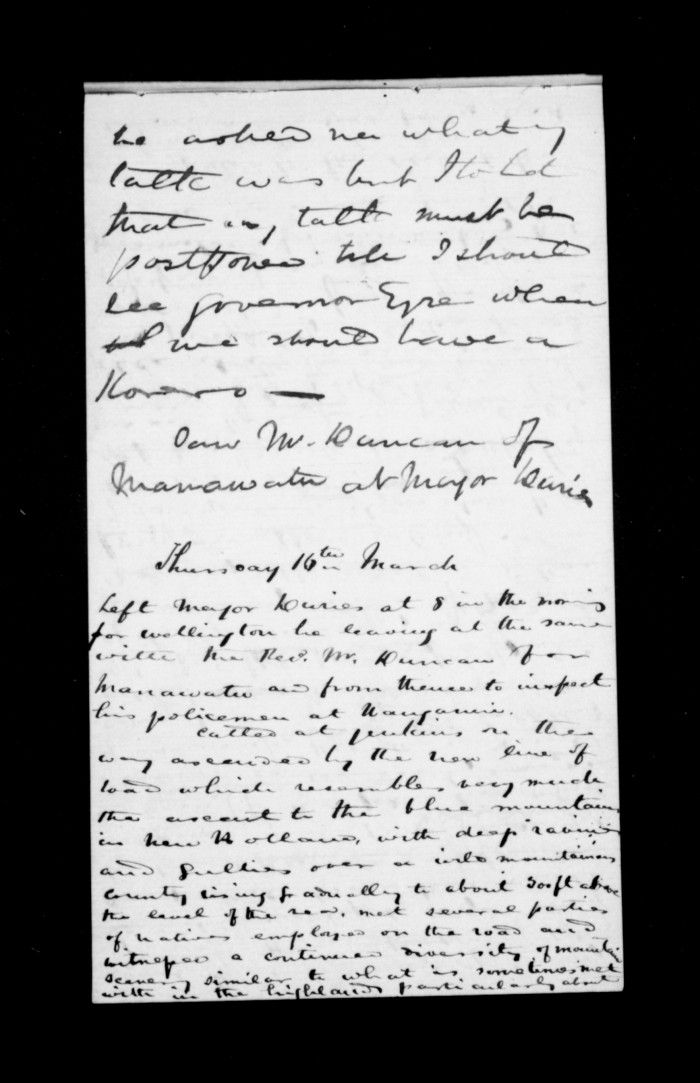 he asked me what my
talk was but I told
that my talk must be
postponed till I should
see governor Eyre when
we should have a
Korero —
Saw Mr. Duncan of
Manawatu at Major Duries
Thursday 16th March
Left Major Duries at 8 in the morning
for wellington he leaving at the same
with the Revd. Mr. Duncan for
Manawatu and from thence to inspect
his policemen at Wanganui.
Called at Jenkins on the
way ascended by the new line of
road which resembles very much
the ascent to the blue mountains
in New Holland, with deep ravines
and gullies over a wild mountainous
country rising gradually to about 300ft above
the level of the sea, met several parties
of natives employed on the road and
witnessed a continued diversity of mountain
scenery similar to what is sometimes met
with in the highlands particularly about